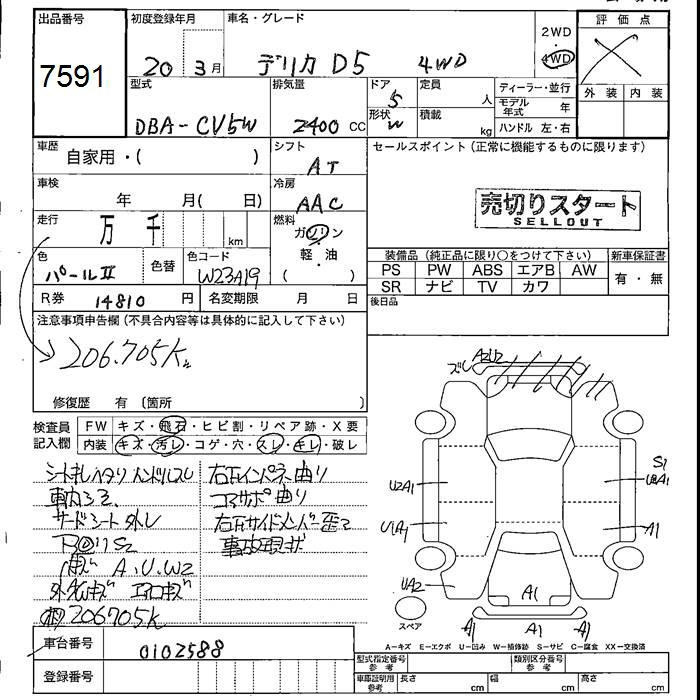 出品番号 初度登録年月 車名・グレード 2WD 評価点
7591 20 3月 デリカ D5 4WD 4WD
外装 内装
型式 排気量 ドア 定員 人 ディーラー・並行
DBA-CV5W 2400 cc 5 形状 W 積載 kg モデル年式 年
ハンドル 左・右
車歴 自家用・( ) シフト AT セールスポイント(正常に機能するものに限ります)
車検 年 月( 日) 冷房 AAC
売切りスタート
SELLOUT
走行 万 千 km 燃料 ガソリン
軽・油
( )
色 パールII 色替 色コード W23A19
装備品(純正品に限り○をつけて下さい) 新車保証書
PS PW ABS エアB AW 有・無
SR ナビ TV カワ
R券 14810 円 名変期限 月 日 後日品
注意事項申告欄(不具合内容等は具体的に記入して下さい)
206.705K
修復歴 有 (箇所 )
検査員 FW キズ・飛石・ヒビ割・リペア跡・X要
記入欄 内装 キズ・汚レ・コゲ・穴・スレ・キレ・破レ
シートキレ ハタリ ハンドルスレ 右Fインパネ曲り
コアサポ曲り
サードシート外レ 右Fサイドメンバー歪ミ
事故現状
A.U.W2
外

206705K
ズレ A2U2
U2A1
U1A1
UA2
S1
A1
A1
A1 A1 A1
スペア
A-キズ E-エクボ U-凹み W-補修跡 S-サビ C-腐食 XX-交換済
車台番号 0102588
登録番号
型式指定番号 参考 類別区分番号 参考
車庫証明用 参考 長さ cm 幅 cm 高さ cm